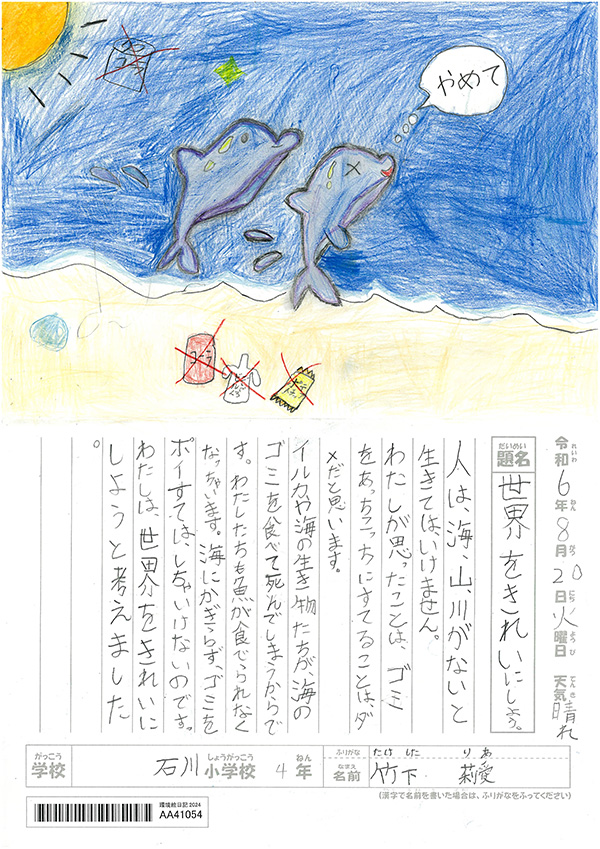 やめて
コーラ
令和6年8月20日火曜日 天気 晴れ
れいわ ねん がつ にち ようび てんき
だいめい
題名 世界をきれいにしよう。
人は、海、山、川がないと
生きてはいけません。
わたしが思ったことは、ゴミ
をあっちこっちにすてることは、ダ
メだと思います。
イルカや海の生き物たちが、海の
ゴミを食べて死んでしまうからで
す。わたしたちも魚が食べられなく
なっちゃいます。海にかぎらず、ゴミを
ポイすては、しちゃいけないのです。
わたしは、世界をきれいに
しようと考えました
。
がっこう しょうがっこう ねん
学校 石川 小学校 4年
ふりがな たけ した り あ
なまえ
名前 竹下 莉愛
(漢字で名前を書いた場合は、ふりがなをふってください)
環境絵日記2024
AA41054